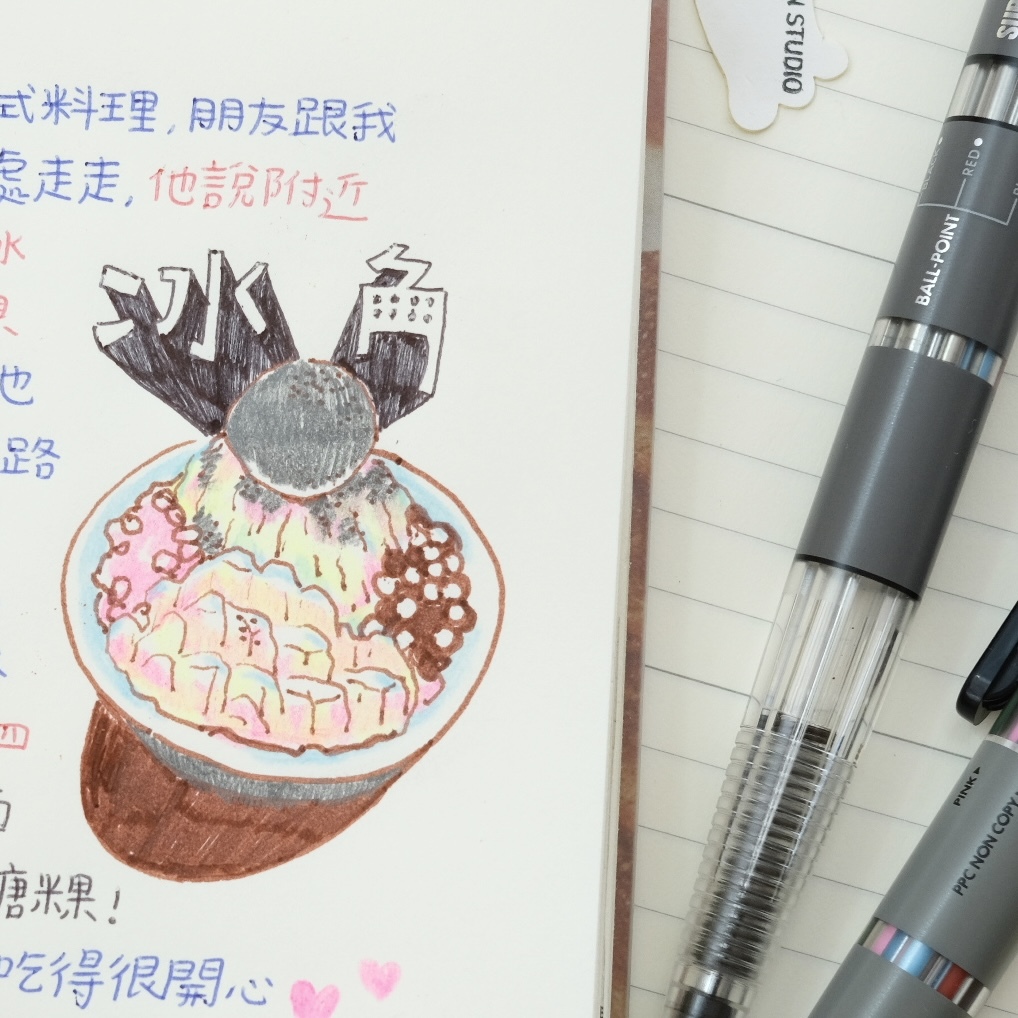 式料理,朋友跟我
處走走,他說附近
冰
也
路
冰角
四
糖粿!
吃得很開心
N STUDIO
RED
BALL-POINT
PINK
PPC NON COPY